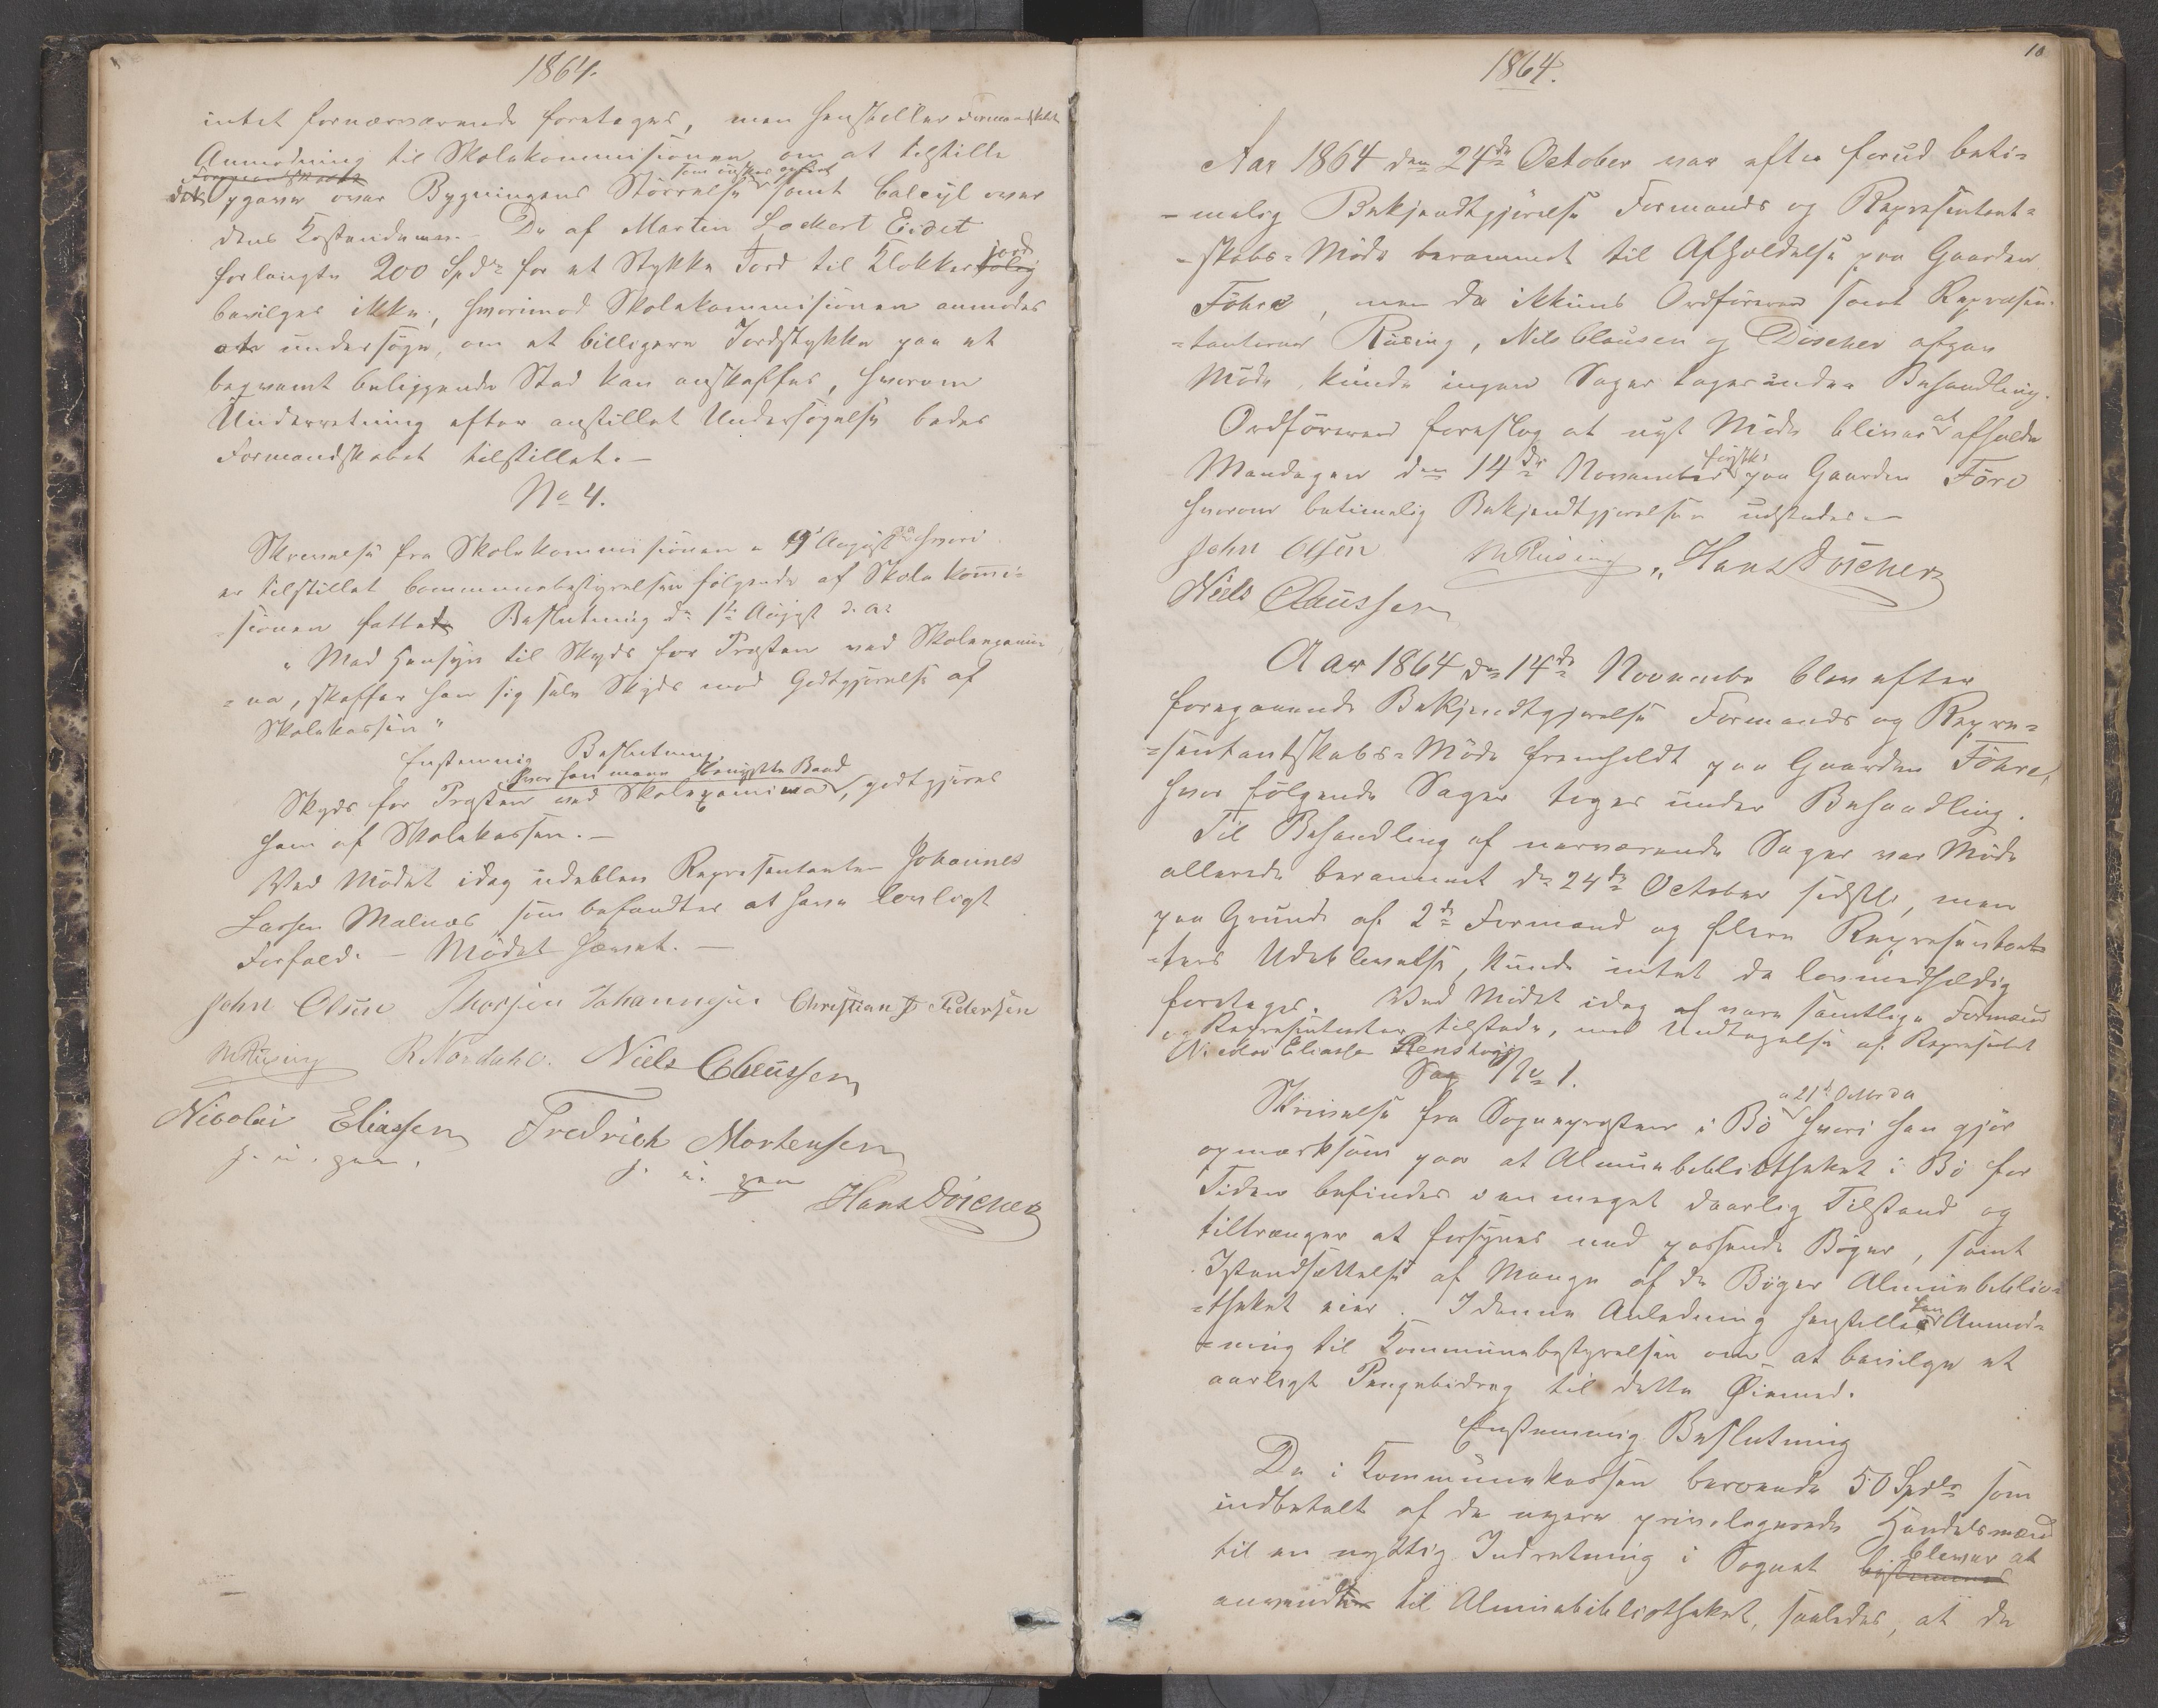 1864.
intet fornærværende foretages, men henstiller Formandskabet
Anmodning til Skolekommisionen om at tilstille
Formandskabet
det Opgaver over Bygningens Störrelse som önskes opført samt Calcyl over
dens Kostendume. De af Morten Lockert Eidet
forlangte 200 Spdr for et Stykke Jord til Klokkerjord
bevilges ikke, hvorimod Skolekommisionen anmodes
at undersöge, om et billigere Jordstykke paa et
beqvemt beliggende Sted kan anskaffes, hvorom
Underretning efter anstillet Undersögelse bedes
Formandskabet tilstillet.—
No 4.
Skrivelse fra Skolekommisionen a 9de August hvori
er tilstillet Communebestyrelsen fölgende af Skolekommi=
=sionen fattet Beslutning dn 1ste August d. A.
"Med Hensyn til Skyds for Prosten ved Skoleexamin
=na, skaffer han sig selv Skyds mod Godtgjörelse af
Skolekassen"
Enstemmig Beslutning
Skyds for Prosten ved Skoleexamina, hvor han maae benytte Baad, godtgjöres
ham af Skolekassen.—
Ved Mödet idag udeblev Repræsentanten Johannes
Larsen Malnæs som befandtes at have lovligt
Forfald. — Mödet hævet.—
John Olsen Thorsten Johannesen Christian P Pedersen
M Rüsing R. Nordahl. Niels Claussen
Nicolai Eliassen Fredrich Mortensen
p. n. pen. p. n. pen
Hans Döscher
10
1864.
Aar 1864 den 24de October var efter forud beti=
=melig Bekjendtgjörelse Formands og Repræsentent=
=skabs=Möde berammet til Afholdelse paa Gaarden
Föhre, men da ikkuns Ordföreren samt Repræsen=
=tanterne Rüsing, Nils Clausen og Döscher afgav
Möde, kunde ingen Sager tages under Behandling.
Ordföreren foreslog at nyt Möde bliver at afholde
Mandagen den 14de November förstk. paa Gaarden Före
hvorom betimelig Bekjendtgjörelse udstedes.—
John Olsen M Rüsing Hans Döscher
Niels Claussen
Aar 1864 dn 14de Novembr blev efter
foregaaende Bekjendtgjörelse Formands og Repræ=
=sentantskabs=Möde fremholdt paa Gaarden Föhre,
hvor fölgende Sager toges under Behandling.
Til Behandling af nærværende Sager var Möde
allerede berammet dn 24de October sidstl., men
paa Grund af 2de Formænd og flere Repræsentan=
=ters Udeblivelse, kunde intet da lovmedholdig
foretages. Ved Mödet idag af vare samtlige Formænd
og Repræsentanter tilstede, med Undtagelse af Repræsentt
Nicolai Eliassen Stenshoug
Sag No 1.
Skrivelse fra Sognepresten i Bö a 21de Octbr da hvori han gjör
opmærksom paa at Almuebibliotheket i Bö for
Tiden befindes i en meget daarlig Tilstand og
tiltrænger at forsynes med passende Böger, samt
Istandsættelse af Mange af de Böger Almuebiblio=
=theket eier. I denne Anledning henstiller han Anmod=
=ning til Kommunebestyrelsen om at bevilge et
aarligt Pengebidrag til dette Öiemed.
Enstemmig Beslutning
De i Kommunekassen beroende 50 Spdlr som
indbetalt af de nyere privilegerede Handelsmænd
til en nyttig Indretning i Sognet bestemmes blever at
anvendte til Almuebibliotheket, saaledes, at de